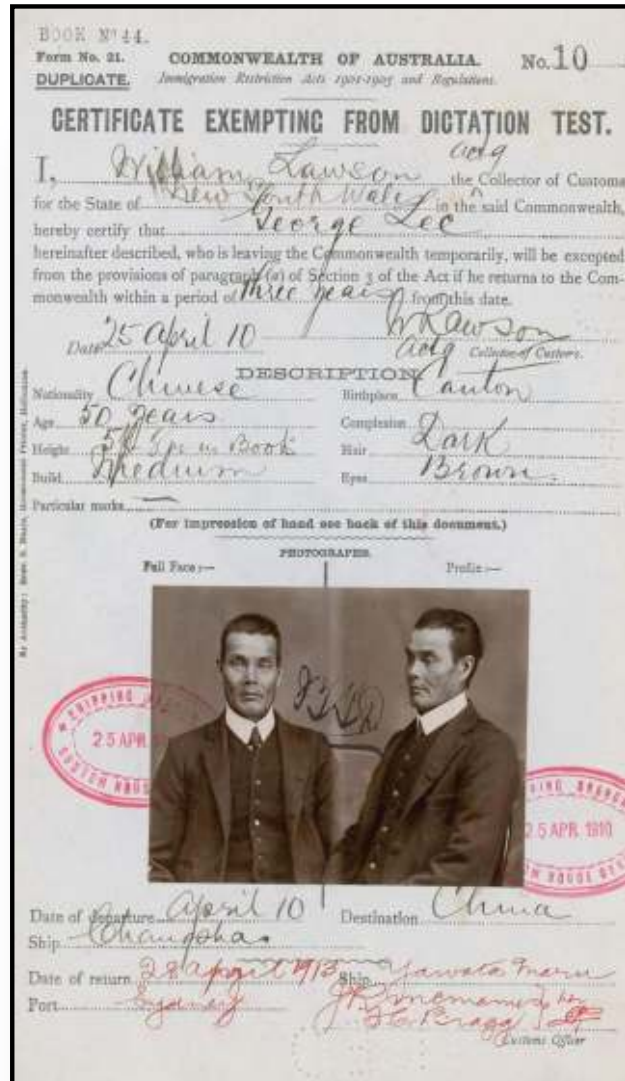 BOOK Nº 44.
Form No. 21. COMMONWEALTH OF AUSTRALIA. No. 10
DUPLICATE. Immigration Restriction Acts 1901-1905 and Regulations.
CERTIFICATE EXEMPTING FROM DICTATION TEST.
actg
I, William Lawson the Collector of Customs
for the State of New South Wales in the said Commonwealth,
hereby certify that George Lee
hereinafter described, who is leaving the Commonwealth temporarily, will be excepted
from the provisions of paragraph (a) of Section 3 of the Act if he returns to the Com-
monwealth within a period of three years from this date.
Date 25 April 10 W Lawson
actg Collector of Customs.
DESCRIPTION
Nationality Chinese Birthplace Canton
Age 50 years Complexion
Height in Book Hair Dark
Build Medium Eyes Brown.
Particular marks —
(For impression of hand see back of this document.)
PHOTOGRAPHS.
Full Face :— Profile :—
SHIPPING
25 APR
CUSTOM HOUSE
SHIPPING BRANCH
25 APR 1910
CUSTOM HOUSE
Date of departure April 10 Destination China
Ship Changsha
Date of return 28 April 1913 Ship Yawata Maru
Port Sydney
Bragg
Customs Officer